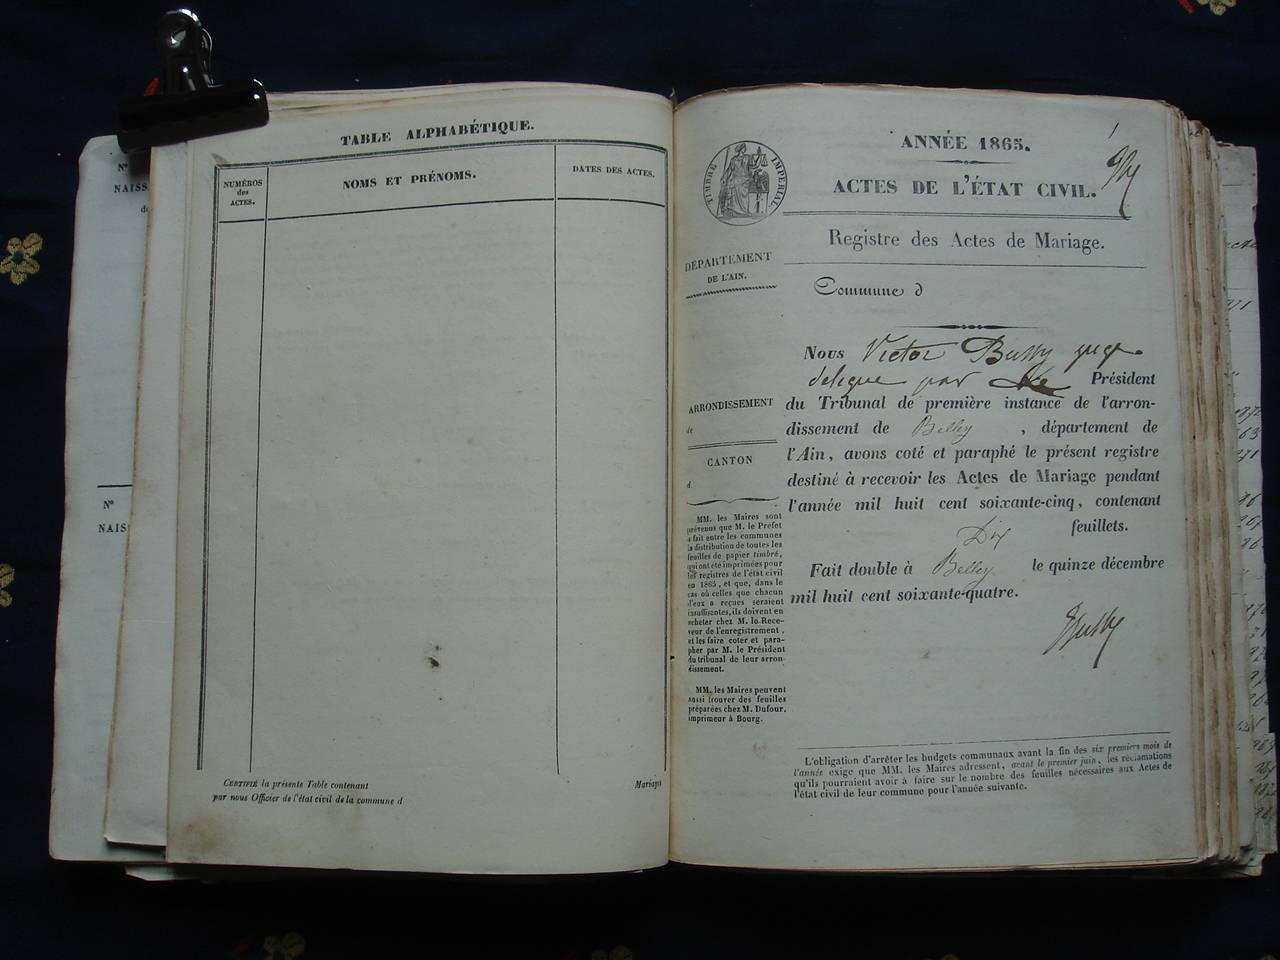 N°
NAISS
d
N°
NAIS
TABLE ALPHABÉTIQUE.
NUMÉROS
des
ACTES.
NOMS ET PRÉNOMS.
DATES DES ACTES.
CERTIFIÉ la présente Table contenant Mariages
par nous Officier de l'état civil de la commune d
TIMBRE IMPÉRIAL
DÉPARTEMENT
DE L'AIN.
ARRONDISSEMENT
de
CANTON
d
MM. les Maires sont
prévenus que M. le Prefet
a fait entre les communes
la distribution de toutes les
feuilles de papier timbré,
qui ont été imprimées pour
les registres de l'état civil
en 1865, et que, dans le
cas où celles que chacun
d'eux a reçues seraient
insuffisantes, ils doivent en
acheter chez M. le Rece-
veur de l'enregistrement,
et les faire coter et para-
pher par M. le Président
du tribunal de leur arron-
dissement.
MM. les Maires peuvent
aussi trouver des feuilles
préparées chez M. Dufour,
imprimeur à Bourg.
ANNÉE 1865.
ACTES DE L'ÉTAT CIVIL.
Registre des Actes de Mariage.
Commune d
Nous Victor Bussy juge
delegue par le Président
du Tribunal de première instance de l'arron-
dissement de Belley, département de
l'Ain, avons coté et paraphé le présent registre
destiné à recevoir les Actes de Mariage pendant
l'année mil huit cent soixante-cinq, contenant
Dix feuillets.
Fait double à Belley le quinze décembre
mil huit cent soixante-quatre.
Bussy
L'obligation d'arrêter les budgets communaux avant la fin des six premiers mois de
l'année exige que MM. les Maires adressent, avant le premier juin, les réclamations
qu'ils pourraient avoir à faire sur le nombre des feuilles nécessaires aux Actes de
l'état civil de leur commune pour l'année suivante.